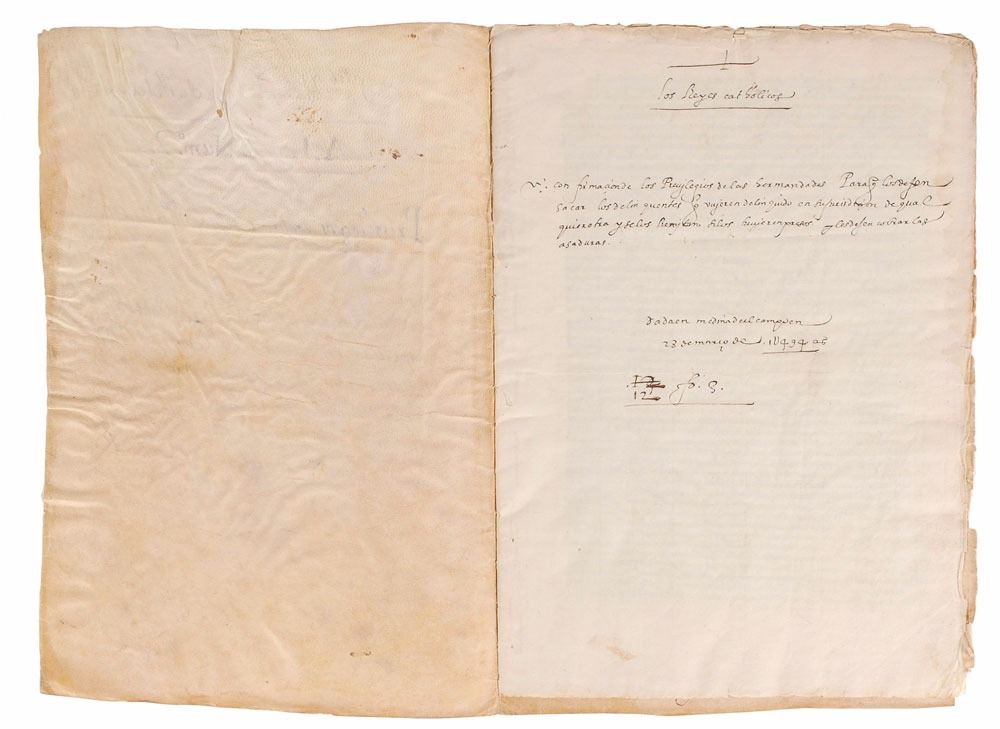 1
los Reyes catholicos
con firmaçion de los Preuilegios de las hermandades Para q̃ los dejen
sacar los delin quentes q̃ vuieren delinquido en su jurisdiçion de qual
quier otra y se los Remitan si los huuieren preso y los dejen cobrar las
asaduras.
dada en medina del campo en
23 de março de 1494 as
12 fo. 3.